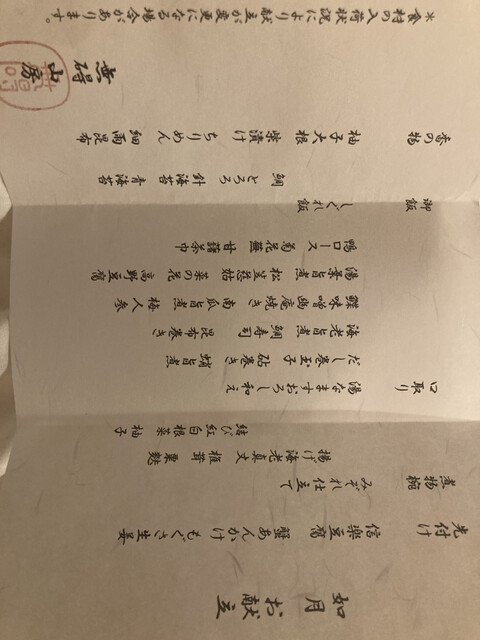 如月お献立
先付け 信楽豆腐 蟹あんかけ もぐさ生姜
煮物椀 みぞれ仕立て
揚げ海老真丈 椎茸 粟麩
結び紅白 根菜 柚子
口取り 湯なますおろし和え
だし巻玉子 砧巻き 蛸旨煮
海老旨煮 鯛寿司 昆布巻き
味噌幽庵焼き 南瓜旨煮 梅人参
湯葉旨煮 松笠慈姑 菜の花 高野豆腐
鴨ロース 菊花蕪 甘藷茶巾
御飯 しぐれ飯
鯛 とろろ 針海苔 青海苔
香の物 柚子大根 柴漬け ちりめん 細雨昆布
無碍山房
※食材の入荷状況により献立が変更になる場合があります。